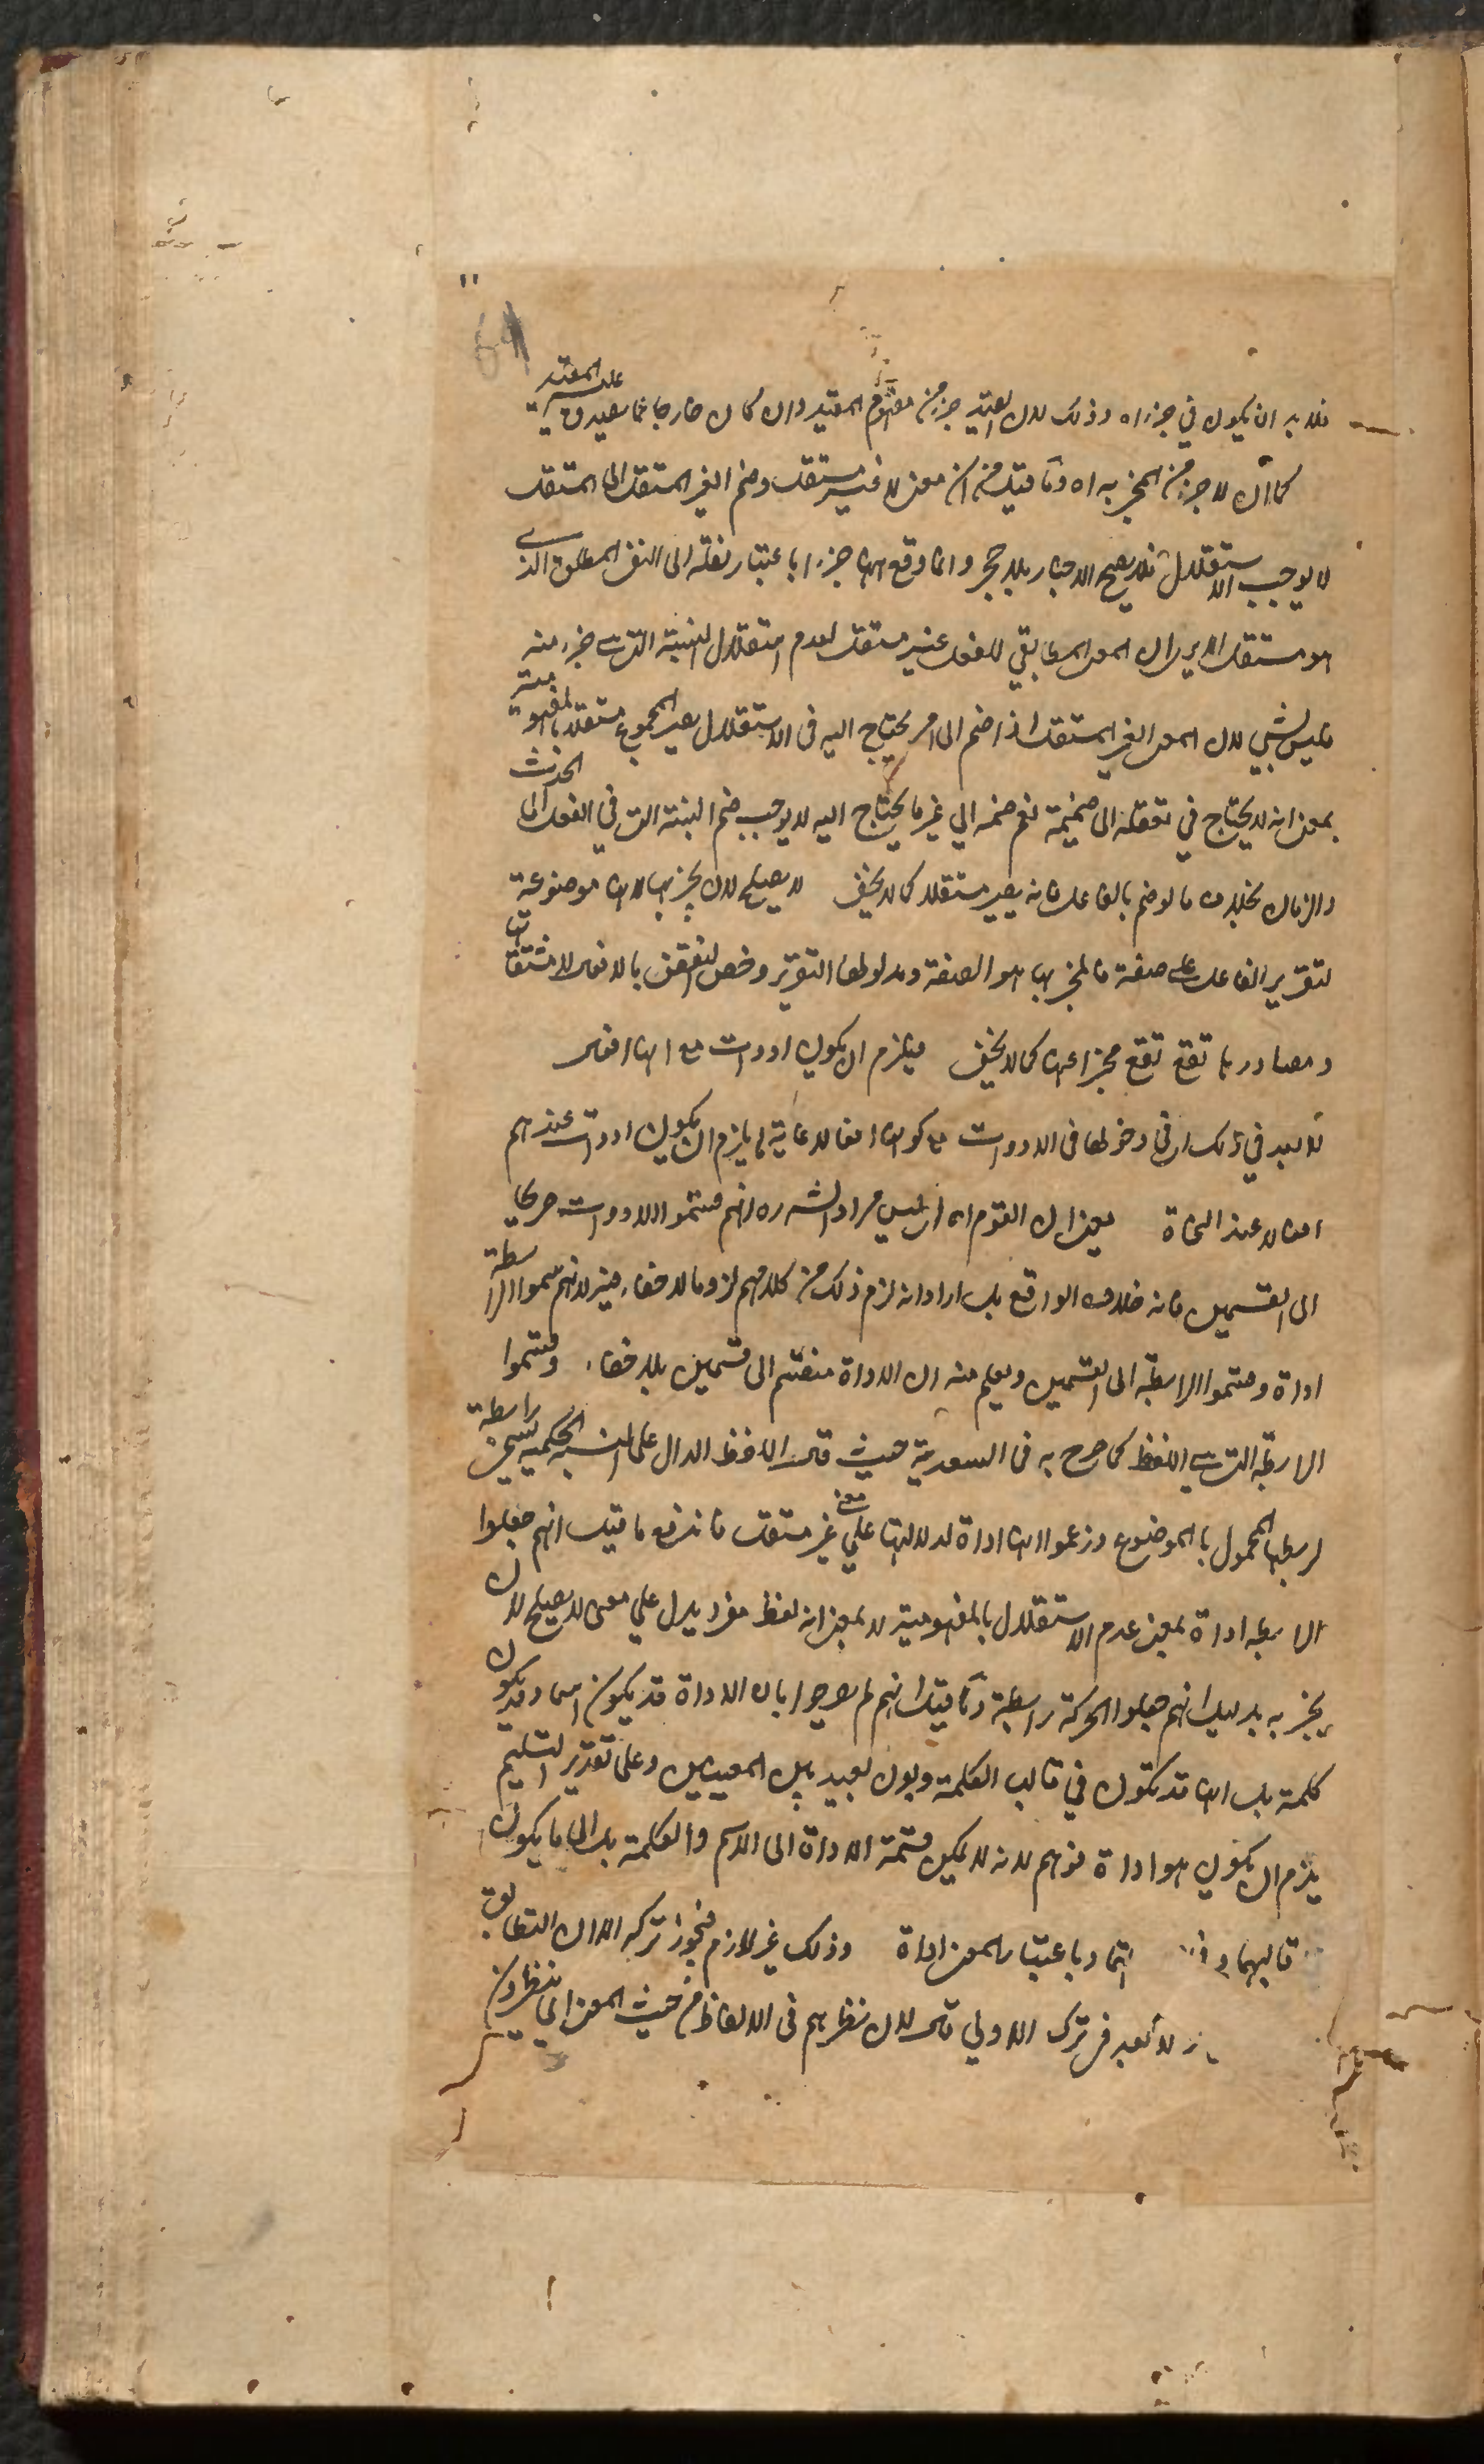 فلابد ان يكون في جزء اه وذلك لان القيد جزء من مفهوم المقيد وان كان خارجا عما يصدق عليه المقيد
كما ان لا جزء من المخبر به اه وما قيل من ان معنى لا غير مستقل وضم الغير المستقل الى المستقل
لا يوجب الاستقلال فلا يصح الاخبار بلا حجر وانما وقع ههنا جزءا باعتبار نقله الى النفي المطلق الذي
هو مستقل الا يرى ان المعنى المطابقي للفعل غير مستقل لعدم استقلال النسبة التي هي جزء منه
فليس بشيء لان المعنى الغير المستقل اذا ضم الى امر يحتاج اليه في الاستقلال يصير المجموع مستقلا بالمفهومية
بمعنى انه لا يحتاج في تعقله الى ضميمة نعم ضمه الى غير ما يحتاج اليه لا يوجب ضم النسبة التي في الفعل الى الحدث
والزمان بخلاف ما لو ضم بالفاعل فانه يصير مستقلا كما لا يخفى لا يصلح لان يخبر بها لانها موضوعة
لتقرير الفاعل على صفة فالمخبر بها هو الصفة ومدلولها التقرير وخص النقض بالافعال لان مشتقاتها
ومصادرها تقع تقع مخبرا عنها كما لا يخفى فيلزم ان يكون ادوات مع انها افعال
لا بعد في ذلك اي في دخولها في الادوات مع كونها افعالا غاية ما يلزم ان يكون ادوات عندهم
افعالا عند النحاة يعني ان القوم اه اي ليس مراد الش ره انهم قسموا الادوات صريحا
الى القسمين فانه خلاف الواقع بل اراد انه لزم ذلك من كلامهم لزوما لا خفاء فيه لانهم سموا الرابطة
اداة وقسموا الرابطة الى القسمين ويعلم منه ان الاداة منقسم الى قسمين بلا خفاء وقسموا
الرابطة التي هي اللفظ كما صرح به في السعدية حيث قال اللفظ الدال على النسبة الحكمية يسمى رابطة
لربطها المحمول بالموضوع وزعموا انها اداة لدلالتها على معنى غير مستقل فاندفع ما قيل انهم جعلوا
الرابطة اداة بمعنى عدم الاستقلال بالمفهومية لا بمعنى انه لفظ مفرد يدل على معنى لا يصلح لان
يخبر به بدليل انهم جعلوا الحركة رابطة وما قيل انهم لم يصرحوا بان الاداة قد يكون اسما وقد يكون
كلمة بل انها قد تكون في قالب الكلمة وبون بعيد بين المعنيين وعلى تقدير التسليم
يلزم ان يكون هو اداة فوهم لانه لا يمكن قسمة الاداة الى الاسم والكلمة بل الى ما يكون
قالبهما و اتحاد باعتبار المعنى اداة وذلك غير لازم فيجوز تركه الا ان التطابق
لا بعد في ترك الاولى قال لان نظرهم في الالفاظ من حيث المعنى اي ينظرون